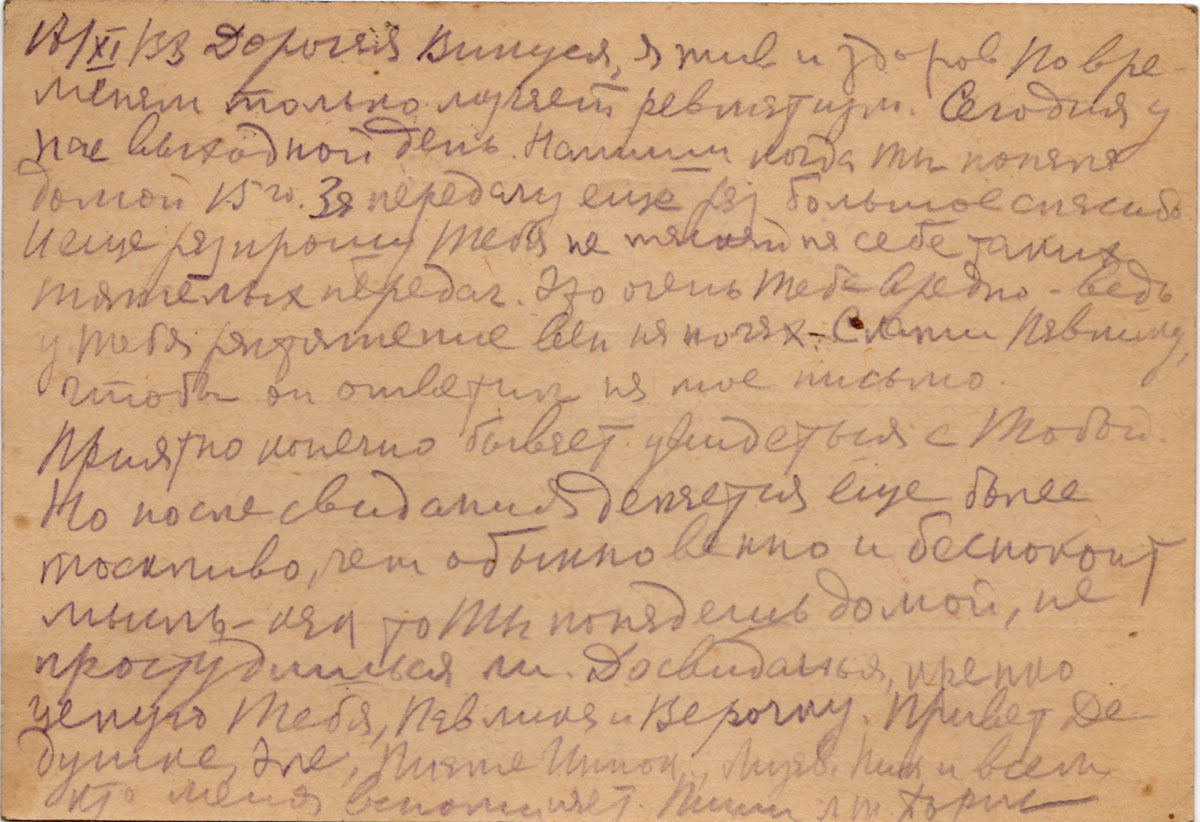 18/XI/33 Дорогая Винуся, я жив и здоров По вре-
менам только мучает ревматизм. Сегодня у
нас выходной день. Напиши когда ты попала
домой 15го. За передачу ещё раз большое спасибо.
И еще раз прошу Тебя не таскай на себе таких
тяжелых передач. Это очень тебе вредно - ведь
у тебя растяжение вен на ногах. - Скажи Павлику,
чтобы он ответил на мое письмо.
Приятно конечно бывает увидеться с Тобой.
Но после свидания делается еще более
тоскливо, чем обыкновенно и беспокоит
мысль - как то Ты попадешь домой, не
простудишься ли. Досвиданья, крепко
целую Тебя, Павлика и Верочку. Привет Де-
душке, Эле, и всем
кто меня вспоминает. Пиши